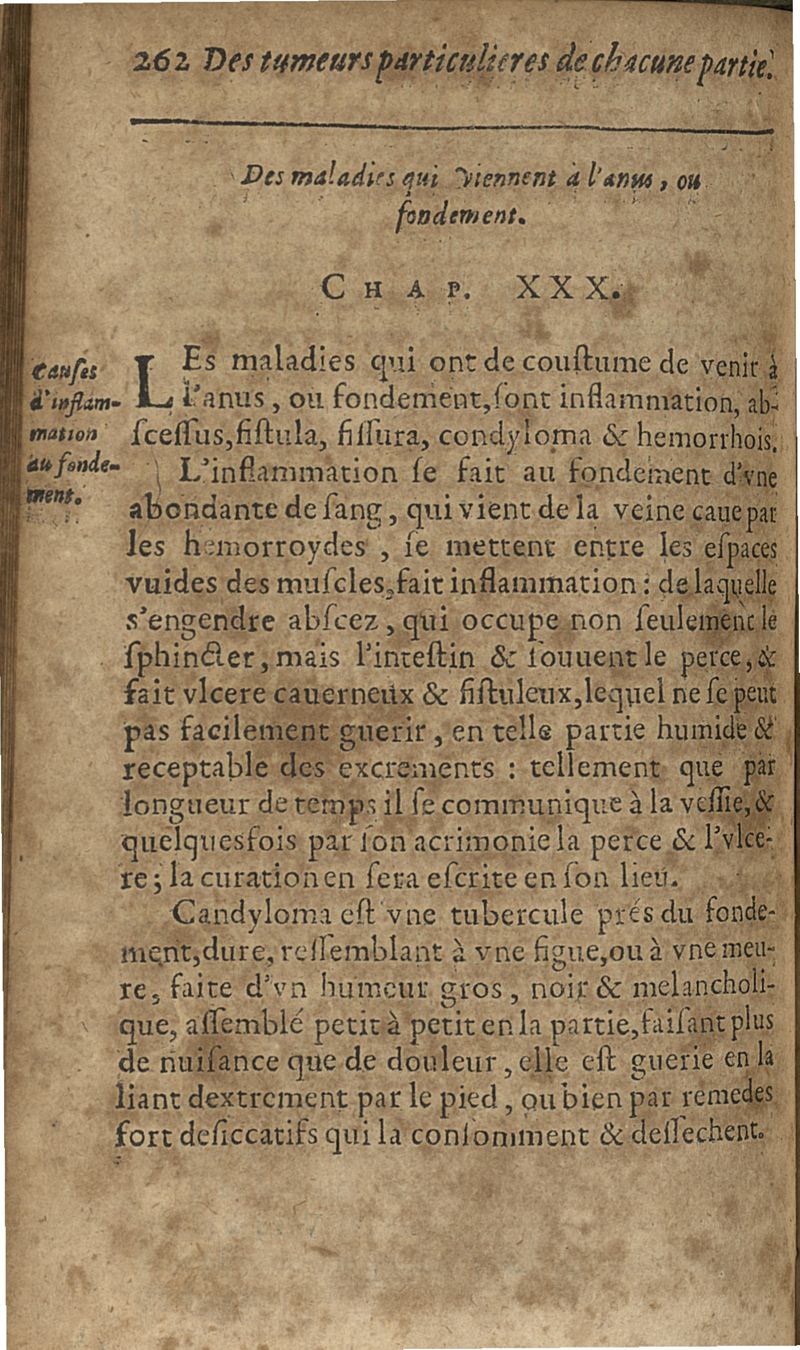 262 Des tumeurs particulieres de chacune partie.
Des maladies qui viennent à l'anus, ou
fondement.
CHAP. XXX.
Causes
d'inflam-
mation
au fonde-
ment.
LEs maladies qui ont de couſtume de venir à
l'anus, ou fondement, ſont inflammation, ab-
ſceſſus, fiſtula, fiſſura, condyloma & hemorrhois.
L'inflammation ſe fait au fondement d'vne
abondante de ſang, qui vient de la veine caue par
les hemorroydes, ſe mettent entre les eſpaces
vuides des muſcles, fait inflammation : de laquelle
s'engendre abſcez, qui occupe non ſeulement le
ſphincter, mais l'inteſtin & ſouuent le perce, &
fait vlcere cauerneux & fiſtuleux, lequel ne ſe peut
pas facilement guerir, en telle partie humide &
receptable des excrements : tellement que par
longueur de temps il ſe communique à la veſſie, &
quelquesfois par ſon acrimonie la perce & l'vlce-
re ; la curation en ſera eſcrite en ſon lieu.
Candyloma eſt vne tubercule prés du fonde-
ment, dure, reſſemblant à vne figue, ou à vne meu-
re, faite d'vn humeur gros, noir & melancholi-
que, aſſemblé petit à petit en la partie, faiſant plus
de nuiſance que de douleur, elle eſt guerie en la
liant dextrement par le pied, ou bien par remedes
fort deſiccatifs qui la conſomment & deſſechent.